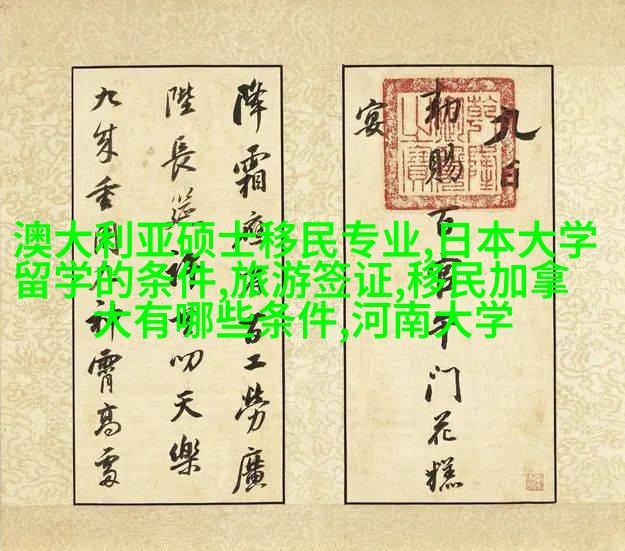 澳大利亚硕士移民专业,日本大学
留学的条件,旅游签证,移民加拿
大有哪些条件,河南大学
九日
賜百官千門花糕
宴
降霜工勞廣
陛長叨天樂
九成重霄高